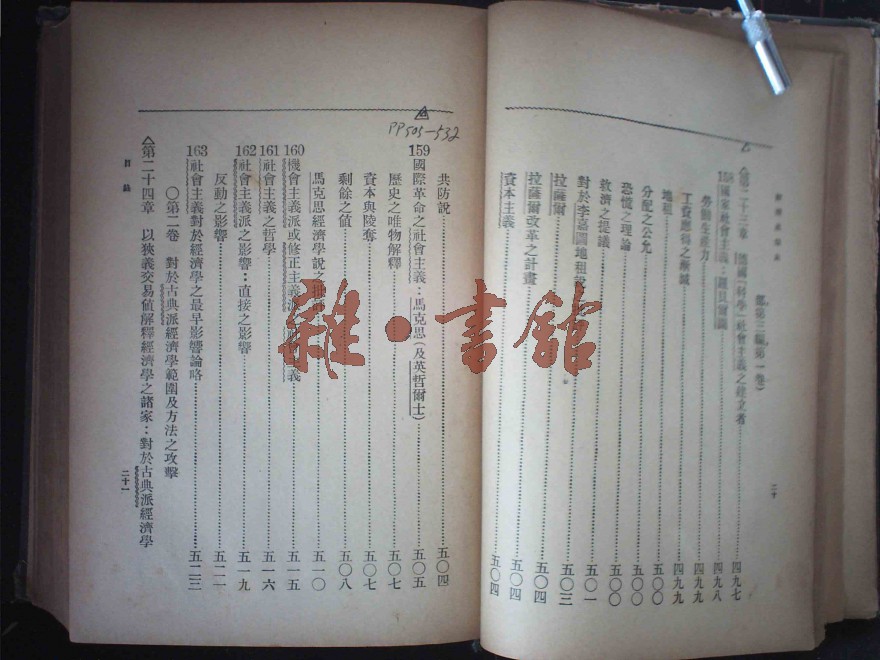 經濟思想史
(第三編第一卷)
第二十三章 德國「科學」社會主義之建立者……四九七
158國家社會主義:羅貝爾圖……四九八
勞動生產力……四九九
工資應得之漸減……四九九
地租……五〇〇
分配之公允……五〇〇
恐慌之理論……五〇〇
救濟之提議……五〇〇
對於李嘉圖地租說
五〇一
拉薩爾……五〇三
拉薩爾改革之計畫……五〇四
資本主義……五〇四
二十
共防說……五〇四
PP 505—532
159國際革命之社會主義:馬克思(及英哲爾士)……五〇五
歷史之唯物解釋……五〇七
資本與陵奪……五〇七
剩餘之值……五〇八
馬克思經濟學說之批評……五一〇
160機會主義派或修正主義派
主義……五一五
161社會主義之哲學……五一六
162社會主義派之影響:直接之影響……五一九
反動之影響……五二一
163社會主義對於經濟學之最早影響論略……五二三
〇第二卷 對於古典派經濟學範圍及方法之攻擊
第二十四章 以狹義交易値解釋經濟學之諸家:對於古典派經濟學
目錄
二十一
雜·書館